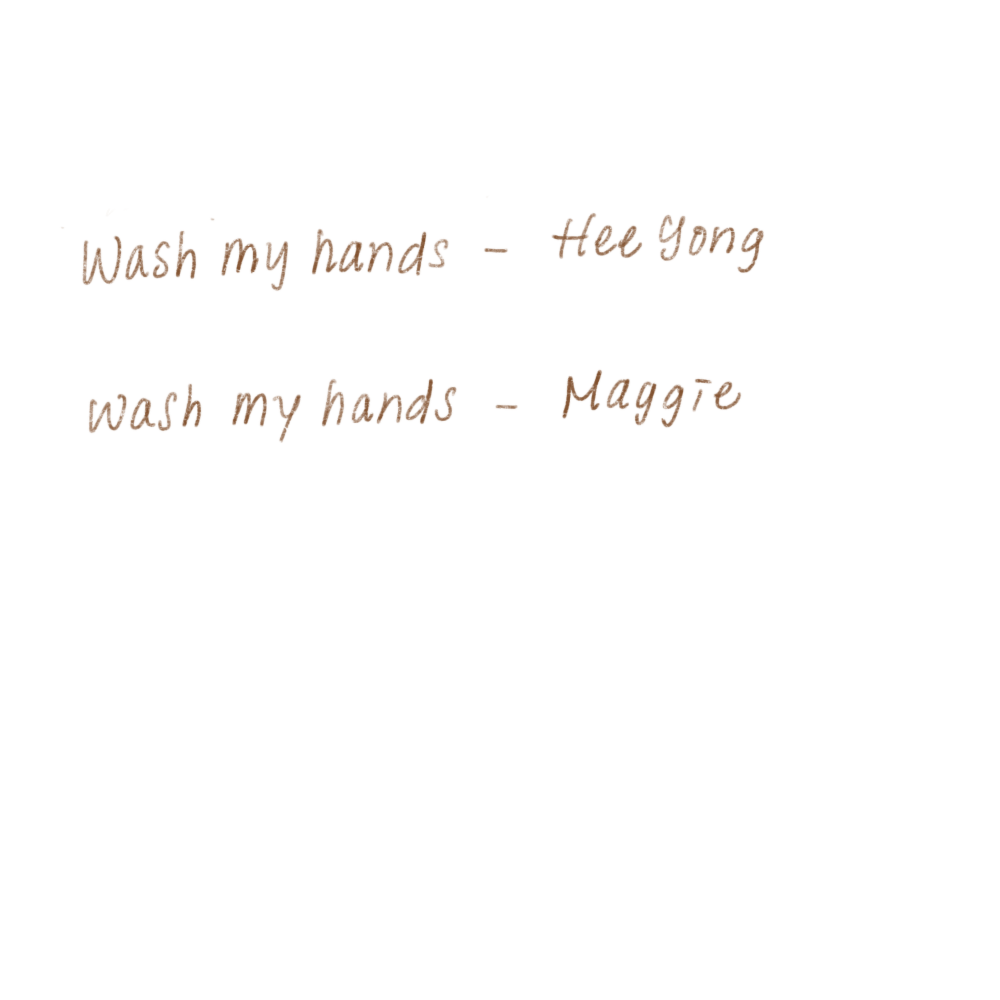 Wash my hands - Hee Yong
wash my hands - Maggie